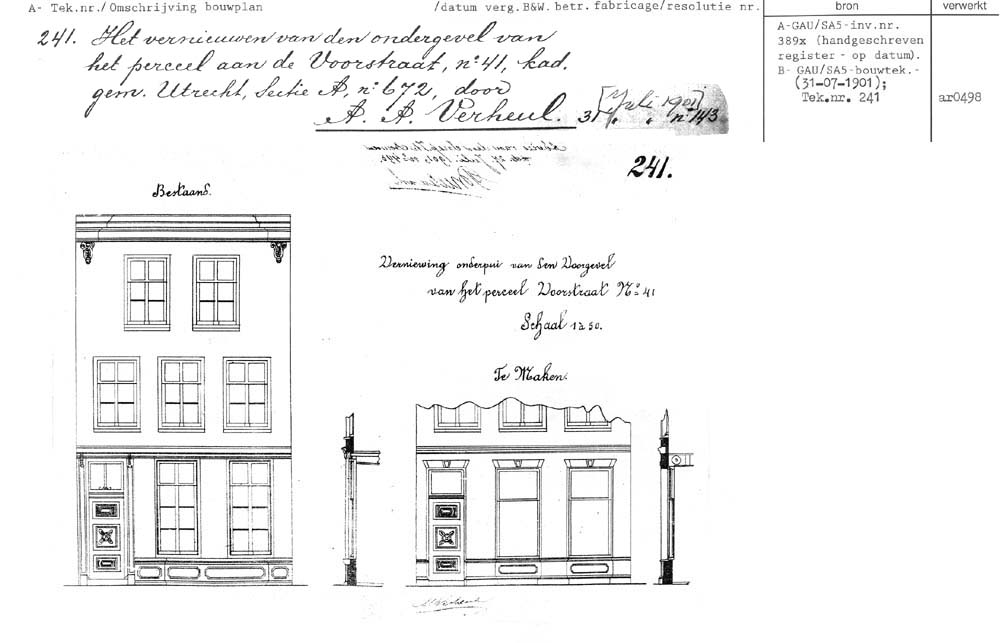 A- Tek.nr./Omschrijving bouwplan /datum verg.B&W. betr. fabricage/resolutie nr.
bron
verwerkt
241. Het vernieuwen van den ondergevel van
het perceel aan de Voorstraat, no 41, kad.
gem. Utrecht, Sectie A, no 672, door
A. A. Verheul.
31 Juli 1901
no 143
A-GAU/SA5-inv.nr.
389x (handgeschreven
register - op datum).
B- GAU/SA5-bouwtek.-
(31-07-1901);
Tek.nr. 241
ar0498
241.
Bestaand.
Vernieuwing onderpui van den Voorgevel
van het perceel Voorstraat No 41
Schaal 1 à 50.
Te Maken.